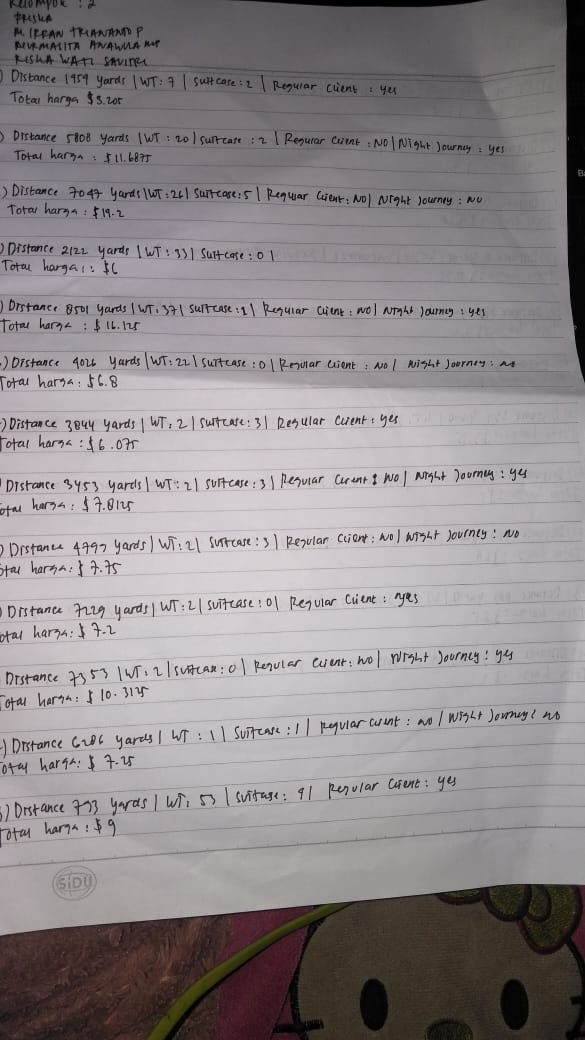 Kelompok : 2
PRISKA
M. IRFAN TRIANANTO P
NURMALITA
RISKA WATI SAVITRI
) Distance 1959 yards | WT : 7 | Suitcase : 2 | Regular Client : yes
Total harga $3.205
) Distance 5808 yards | WT : 20 | Suitcase : 2 | Regular Client : NO | Night Journey : yes
Total harga : $11.6875
) Distance 7047 yards | WT : 26 | Suitcase : 5 | Regular Client : NO | Night Journey : NO
Total harga : $19.2
) Distance 2122 yards | WT : 33 | Suitcase : 0 |
Total harga : $6
) Distance 8501 yards | WT : 37 | Suitcase : 1 | Regular Client : NO | Night Journey : yes
Total harga : $16.125
) Distance 4026 yards | WT : 22 | Suitcase : 0 | Regular Client : NO | Night Journey : no
Total harga : $6.8
) Distance 3844 yards | WT : 2 | Suitcase : 3 | Regular Client : yes
Total harga : $6.075
Distance 3453 yards | WT : 2 | Suitcase : 3 | Regular Client : NO | Night Journey : yes
Total harga : $7.8125
) Distance 4797 yards | WT : 2 | Suitcase : 3 | Regular Client : NO | Night Journey : NO
Total harga : $7.75
) Distance 7229 yards | WT : 2 | Suitcase : 0 | Regular Client : yes
Total harga : $7.2
Distance 7353 | WT : 2 | Suitcase : 0 | Regular Client : NO | Night Journey : yes
Total harga : $10.3125
) Distance 6286 yards | WT : 1 | Suitcase : 1 | Regular Client : no | Night Journey : no
Total harga : $7.25
) Distance 793 yards | WT : 53 | Suitcase : 9 | Regular Client : yes
Total harga : $9
SIDU